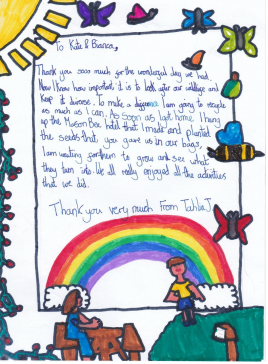 To Kate & Bianca,
Thank you sooo much for the wonderful day we had.
Now I know how important it is to look after our wildlife and
keep it diverse. To make a difference I am going to recycle
as much as I can. As soon as I got home I hung
up the Mason Bee hotel that I made and planted
the seeds that you gave us in our bags,
I am waiting for them to grow and see what
they turn into. We all really enjoyed all the activities
that we did.
Thank you very much From